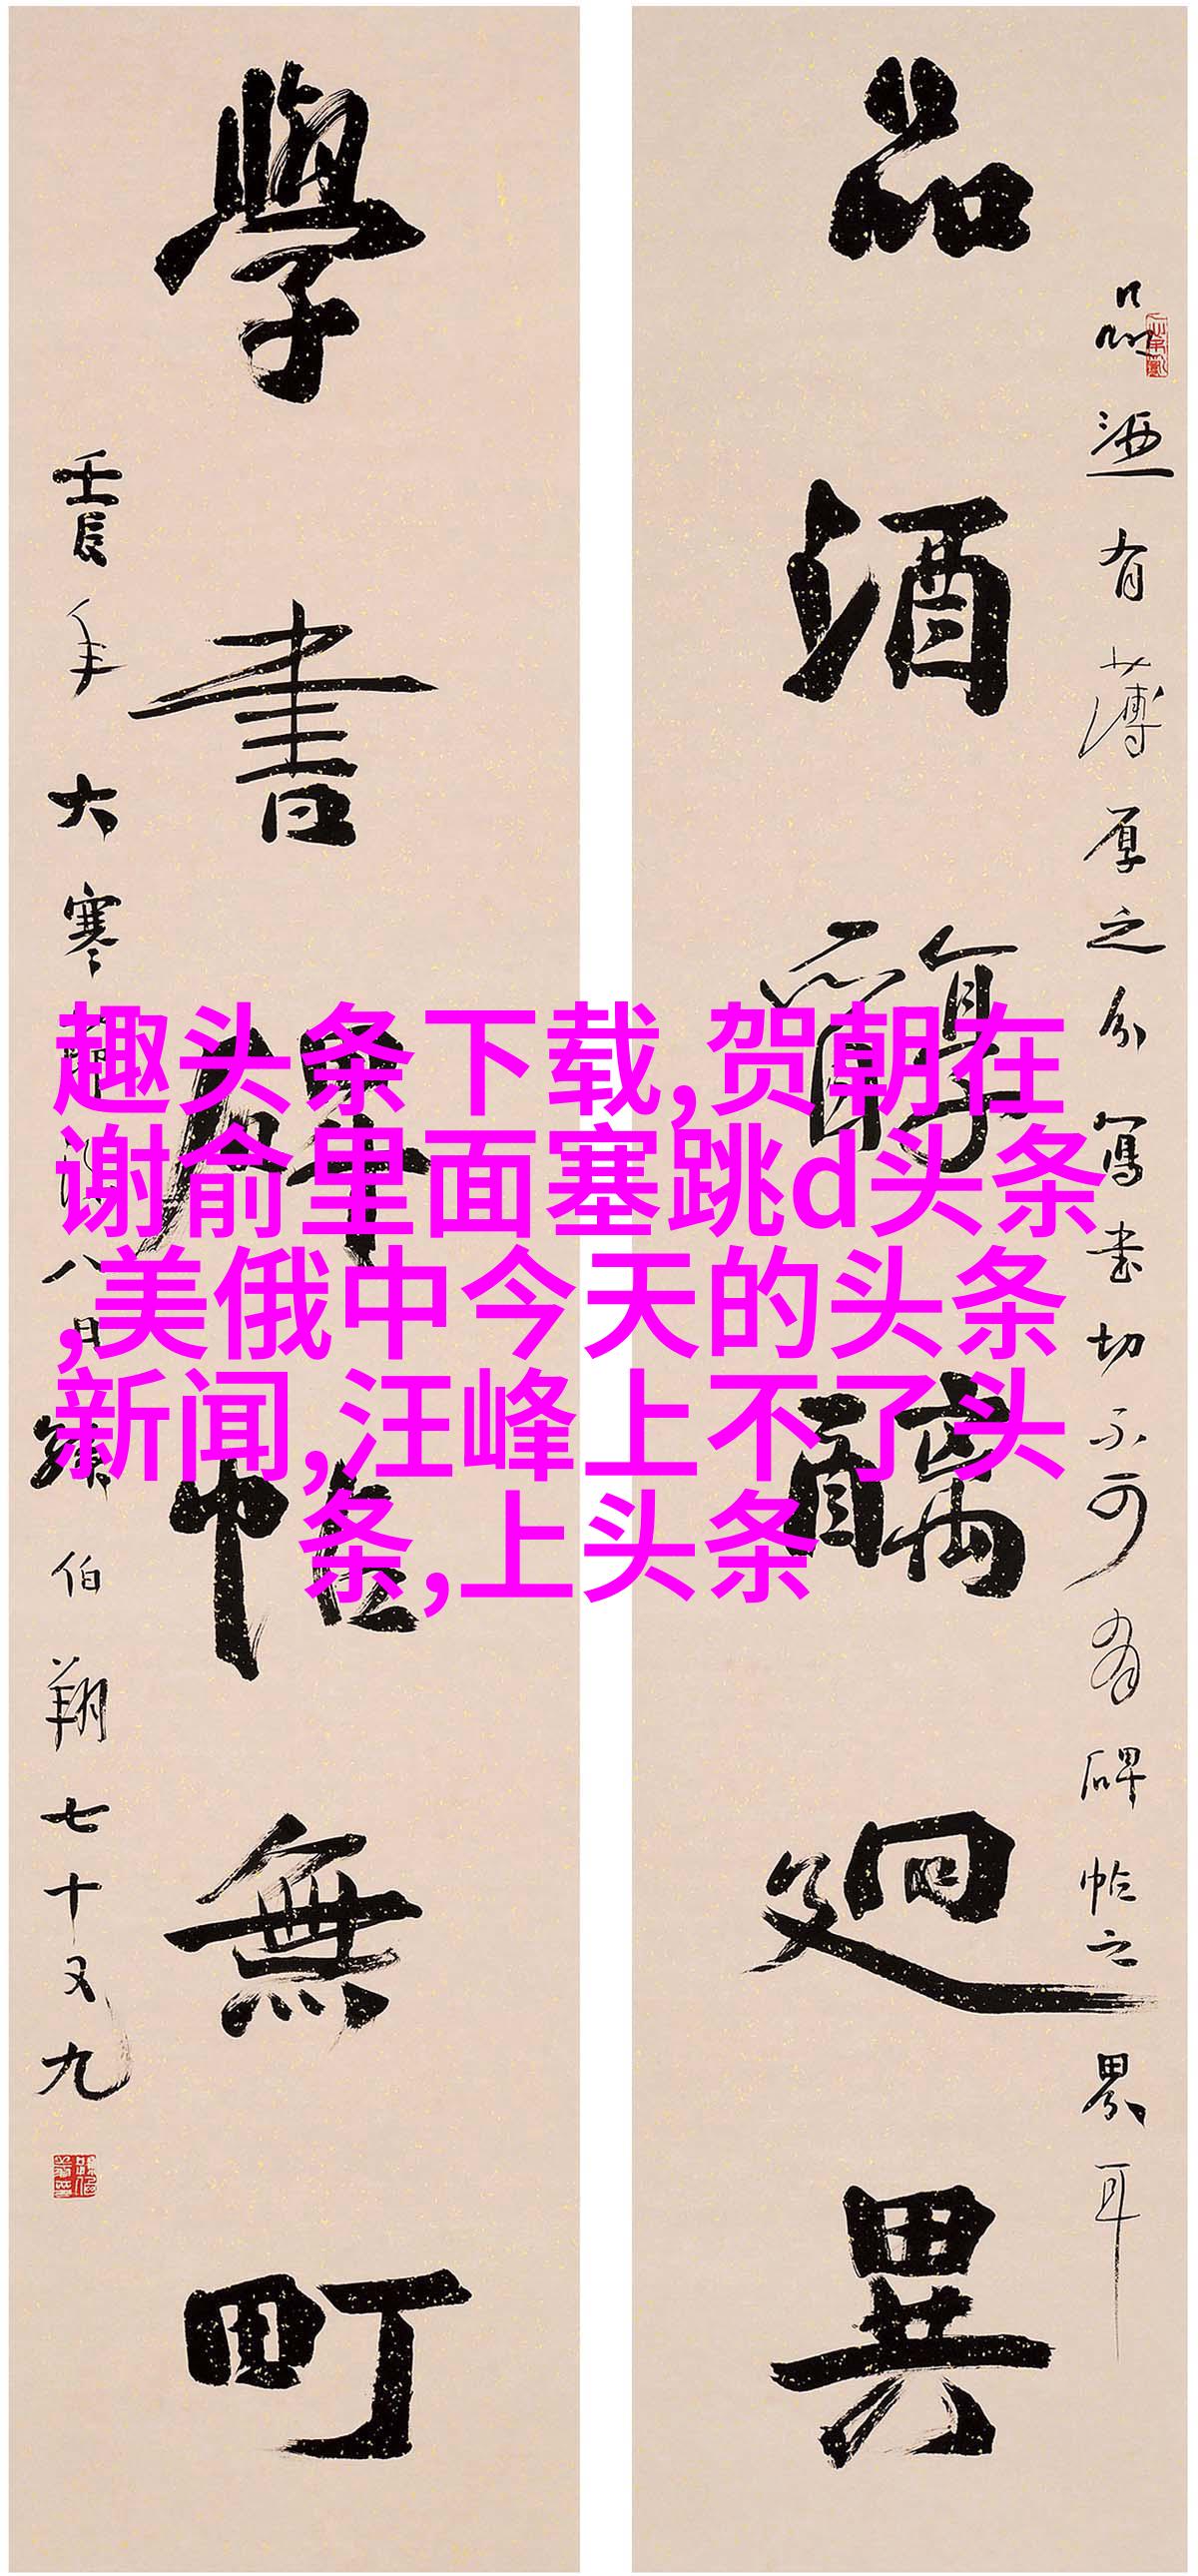 品酒有薄厚之分寫書切不可有碑帖之界耳
品酒醇醨廻異
學書碑帖無町
壬辰年大寒八日孫伯翔七十又九
趣头条下载,贺朝在
谢俞里面塞跳d头条
,美俄中今天的头条
新闻,汪峰上不了头
条,上头条